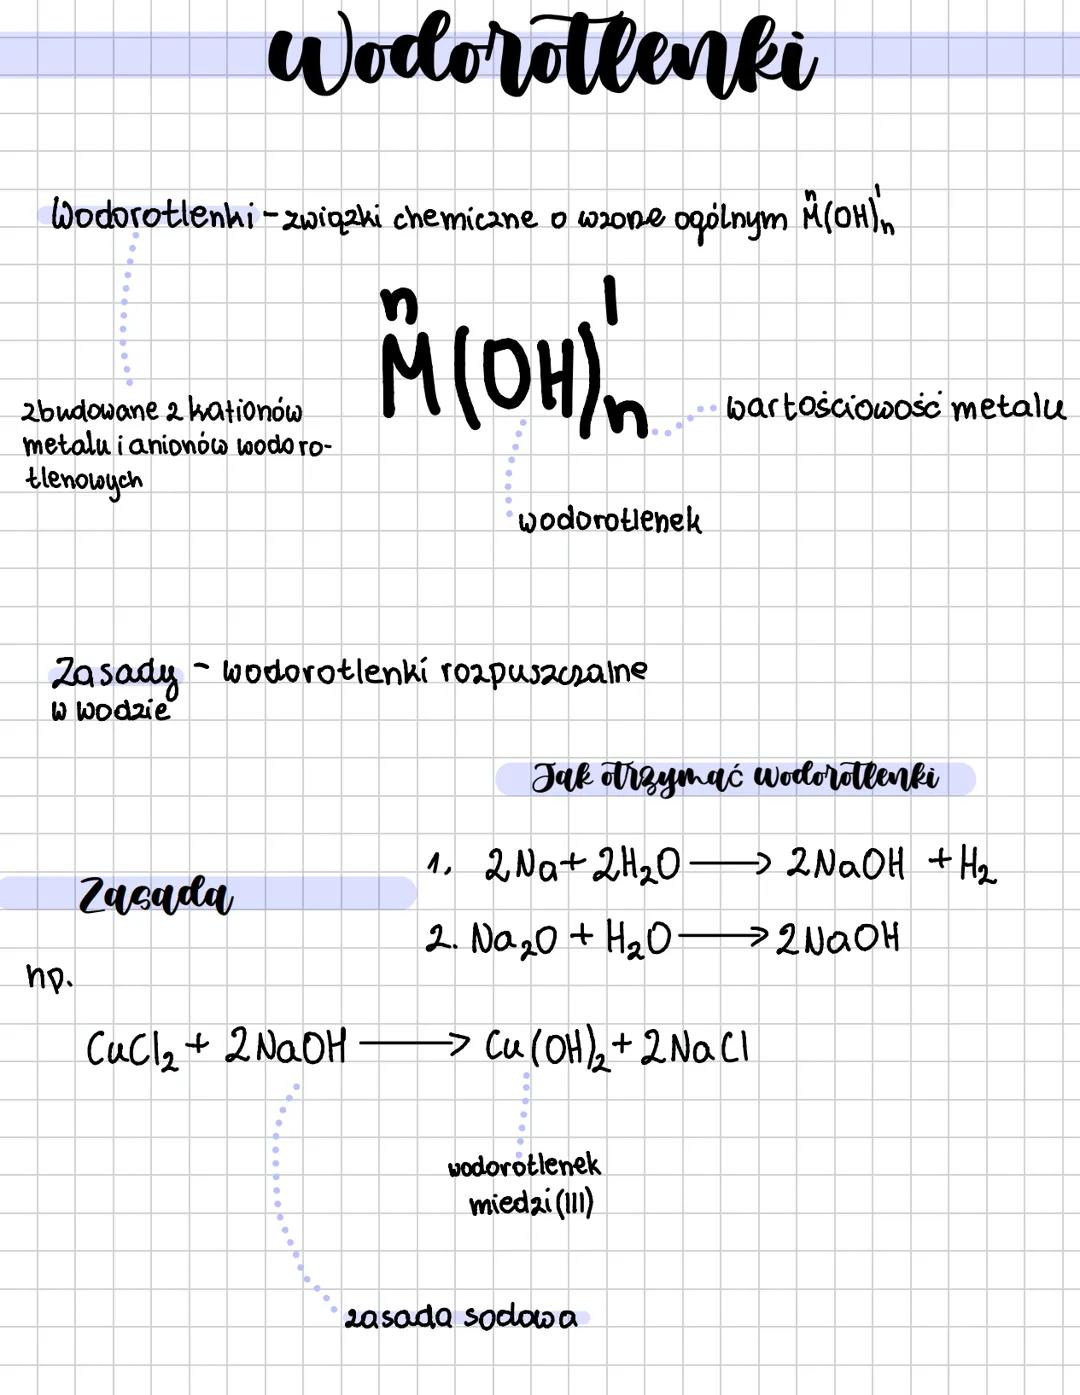 Wodorotlenki
Wodorotlenki - związki chemiczne o wzorze ogólnym M(OH)n
n I
n I
M(OH)n
wartościowość metalu
zbudowane z kationów
metalu i anionów wodoro-
tlenowych
wodorotlenek
Zasady - wodorotlenki rozpuszczalne
w wodzie
Jak otrzymać wodorotlenki
1. 2Na + 2H₂O ⟶ 2NaOH + H₂
2. Na₂O + H₂O ⟶ 2NaOH
Zasada
np.
CuCl₂ + 2NaOH ⟶ Cu(OH)₂ + 2NaCl
wodorotlenek
miedzi (III)
zasada sodowa